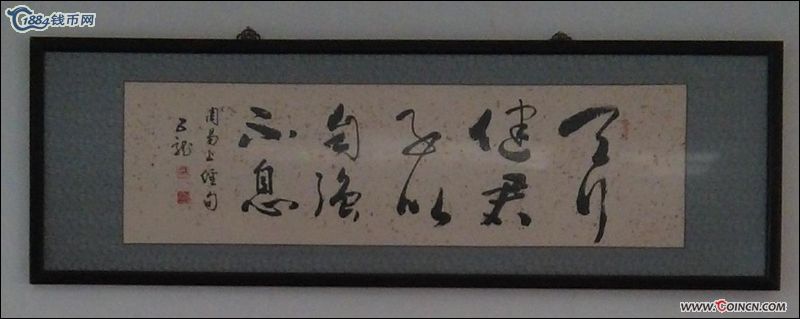 1884钱币网
天行
健君
子以
自強
不息
周易上經句
龍
www.COINCN.com